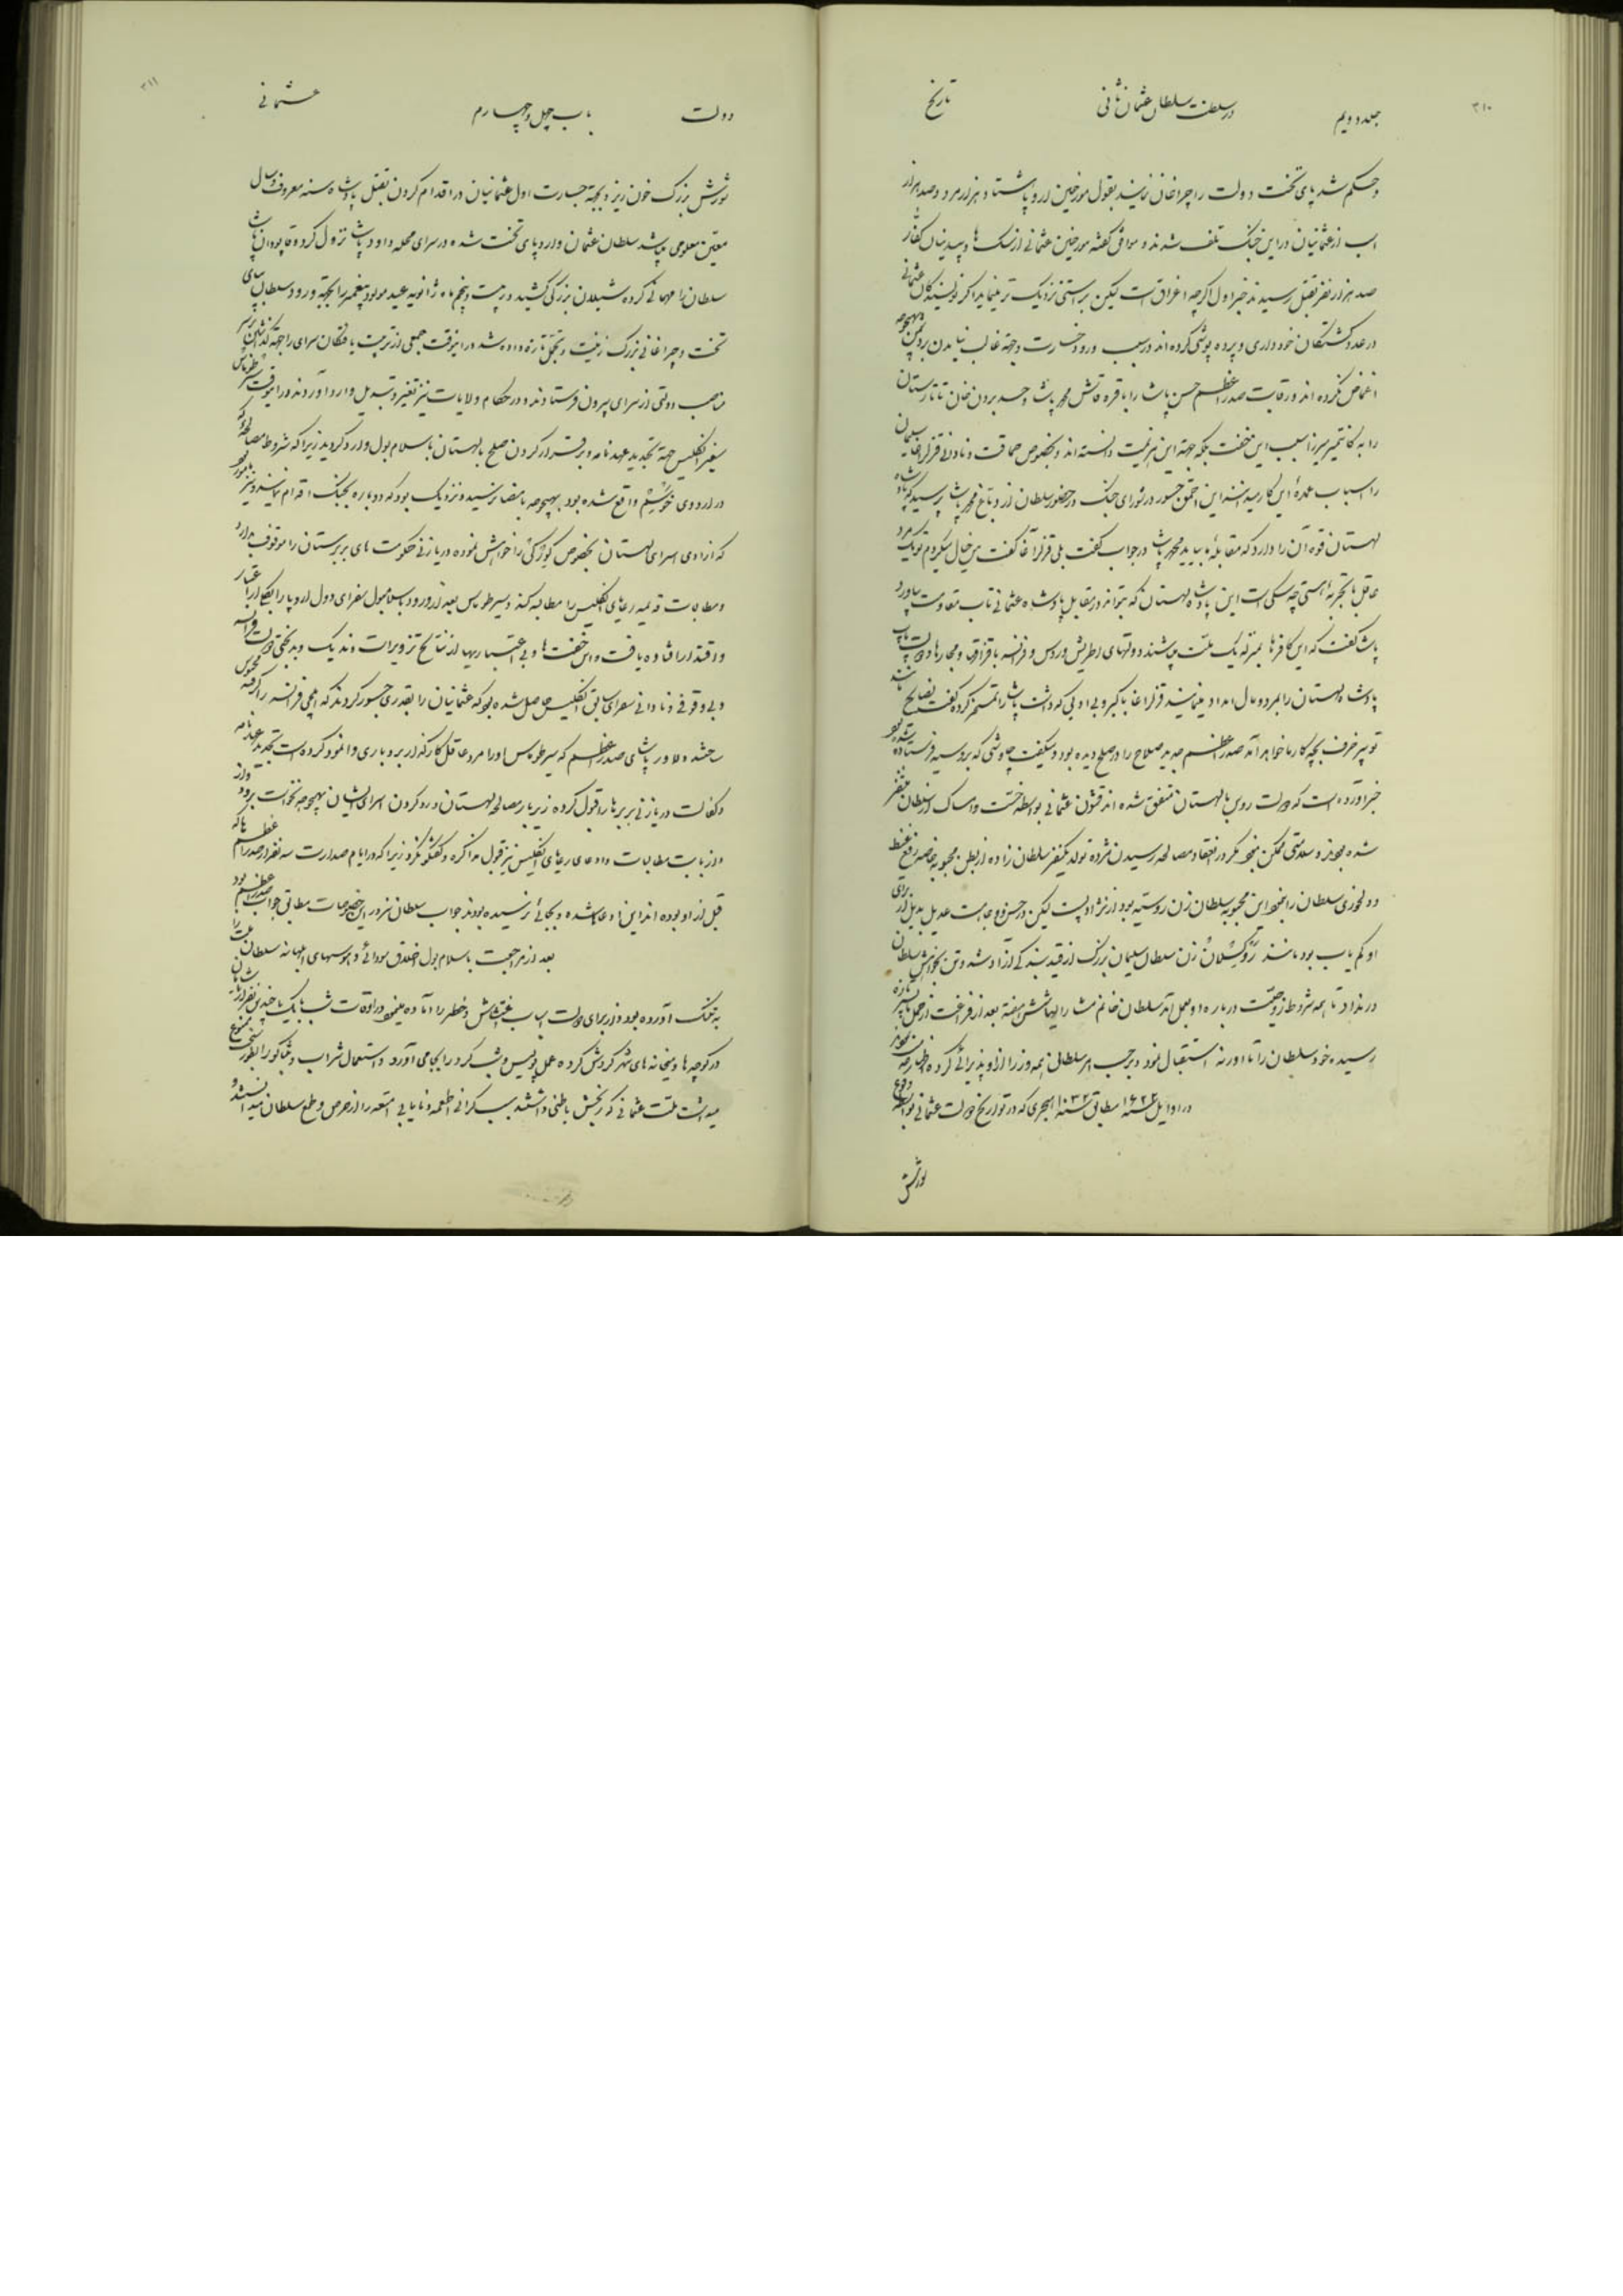 ۳۱۰
جلد دویم در سلطنت سلطان عثمان ثانی تاریخ
و حکم شد پای تخت دولت را چراغان نمایند بقول مورخین اروپا شتاد هزار مرد و صد هزار
اسب از عثمانیان در این جنگ تلف شدند و موافق گفته مورخین عثمانی از کفار
صد هزار نفر بقتل رسیدند خبر اول اگرچه اغراق است لیکن براستی نزدیک تر مینماید اگر نویسندگان عثمانی
در عدد کشتگان خودداری و پرده پوشی کرده اند در سبب ورود خسارت وجهة غالب نیامدن بدشمن بهیچوجه
اغماض نکرده اند و رقابت صدر اعظم حسن پاشا را با قره قاش محمد پاشا و حسد بردن خان تاتارستان
را به کانتمیر میرزا سبب این خفت بلکه جهة این هزیمت دانسته اند و بخصوص حماقت و نادانی قزلر اغاسی سلیمان
را اسباب عمدهٔ این کار میدانند این احمق جسور در شورای جنگ در حضور سلطان از محمد پاشا پرسید که پادشاه
لهستان قوه آن را دارد که مقابلهٔ ما بیاید محمد پاشا در جواب گفت بلی قزلر آغا گفت من خیال میکردم تو یک مرد
عاقل با تجربهٔ هستی چه سگی است این پادشاه لهستان که بتواند در مقابل پادشاه عثمانی تاب مقاومت بیاورد
پاشا گفت که این کافرها بمنزله یک ملت میباشند دولتهای اطریش و روس و فرانسه با قزاقها و مجارها و دولت پاپ
پادشاه لهستان را بمرد و مال امداد مینمایند قزلر اغا با کبر و بی ادبی که داشت پاشا را تمسخر کرده گفت نصایح
تو پیر خرف بچه کار ما خواهد آمد صدر اعظم جدید صلاح را در صلح دیده بود و میگفت چاوشی که بروسیه فرستاده شده بود
خبر آورده است که دولت روس با لهستان متفق شده اند قشون عثمانی بواسطه خست و امساک از سلطان متنفر
شده بودند و سلامتی ممکن نبود مگر در انعقاد مصالحه رسیدن مژده تولد یکنفر سلطان زاده از بطن محبوبه خاصه رفع غیظ
و دلخوری سلطان را نمود این محبوبه سلطان زن روسیه بود از نژاد پست لیکن در حسن و وجاهت عدیل و بدیل از برای
او کم یاب بود مانند رُوکسِلان زن سلطان سلیمان بزرگ از قید بندگی آزاد شد و تن بخواهش سلطان
در نداد تا همه شروط زوجیت درباره او بعمل آمد سلطان خانم مشارالیها شش هفته بعد از فراغت از حمل تازه
رسیده خود سلطان را تا ادرنه استقبال نمود و بر حسب امر سلطانی همه وزرا از او پذیرائی کرده
در اوایل سنه ۱۶۲۲ مطابق سنه ۱۰۳۲ هجری که در تواریخ دولت عثمانی بواسطه وقوع
شورش
۳۱۱
دولت باب چهل و چهارم عثمانی
شورش بزرگ خون ریز و بجهة جسارت اول عثمانیان در اقدام کردن بقتل پادشاه سنه معروف و سال
معین معلومی میباشد سلطان عثمان وارد پای تخت شده در سرای محله داود پاشا نزول کرده قاپودان پاشا
سلطان را مهمانی کرده شیلان بزرگی کشید در بیست و پنجم ماه ژانویه عید مولود پیغمبر را بجهة ورود سلطان بپای
تخت و چراغانی بزرگ زینت و تجمل تازه داده شد در اینوقت جمعی از تربیت یافتگان سرای را جهة گذاشتن بر سر
مناصب دولتی از سرای بیرون فرستادند و در حکام ولایات نیز تغییر و تبدیل وارد آوردند در اینوقت سر طوماس
سفیر انگلیس جهة تجدید عهدنامه و برقرار کردن صلح با لهستان باسلامبول وارد گردید زیرا که شروط مصالحهٔ که
در اردوی خوتسیم واقع شده بود بهیچوجه بامضا نرسید و نزدیک بود که دوباره بجنگ اقدام نمایند و نیز مامور بود
که آزادی اسرای لهستان بخصوص را خواهش نموده دریازنی حکومت های بربرستان را موقوف بدارد
و مطالبات قدیمه رعایای انگلیس را مطالبه کند سر طوماس بعد از ورود باسلامبول سفرای دول اروپا را از اعتبار
و اقتدار افتاده یافت و این خفت ها و بی اعتباریها از نتایج تزویرات وندیک و بدبختی دولت فرانسه
و بی وقوفی و نادانی سفرای سابق انگلیس حاصل شده بود که عثمانیان را بقدری جسور کردند که ایلچی فرانسه را گرفته محبوس
ساختند دلاور پاشای صدر اعظم که سر طوماس او را مرد عاقل کارگذار بردباری وانمود کرده است تجدید عهدنامه
و کفالت دریازنی بربرها را قبول کرده زیر بار مصالحه لهستان و رد کردن اسرای ایشان بهیچوجه نخواست برود و از
و از بابت مطالبات و ادعای رعایای انگلیس نیز قبول مذاکره و گفتگو نکرد زیرا که در ایام صدارت سه نفر از صدر اعظم ها که
قبل از او بوده اند این ادعا شده و بجائی نرسیده بود و جواب سلطان نیز در این خصوصیات مطابق جواب صدر اعظم بود
بعد از مراجعت باسلامبول اخلاق سودائی و هوسهای ابلهانه سلطان ملت را
به تنگ آورده بود و از برای دولت اسباب اغتشاش و خطر را آماده مینمود در اوقات شب با یک یا چند نفر از
در کوچه ها و میخانه های شهر گردش کرده عمل پلیس و شب گرد را بجا می آورد و استعمال شراب و تنباکو را بطور سخت ممنوع
میداشت ملت عثمانی که رنجش باطنی داشتند سبب گرانی اطعمه و نایابی امتعه را از حرص و طمع سلطان میدانستند